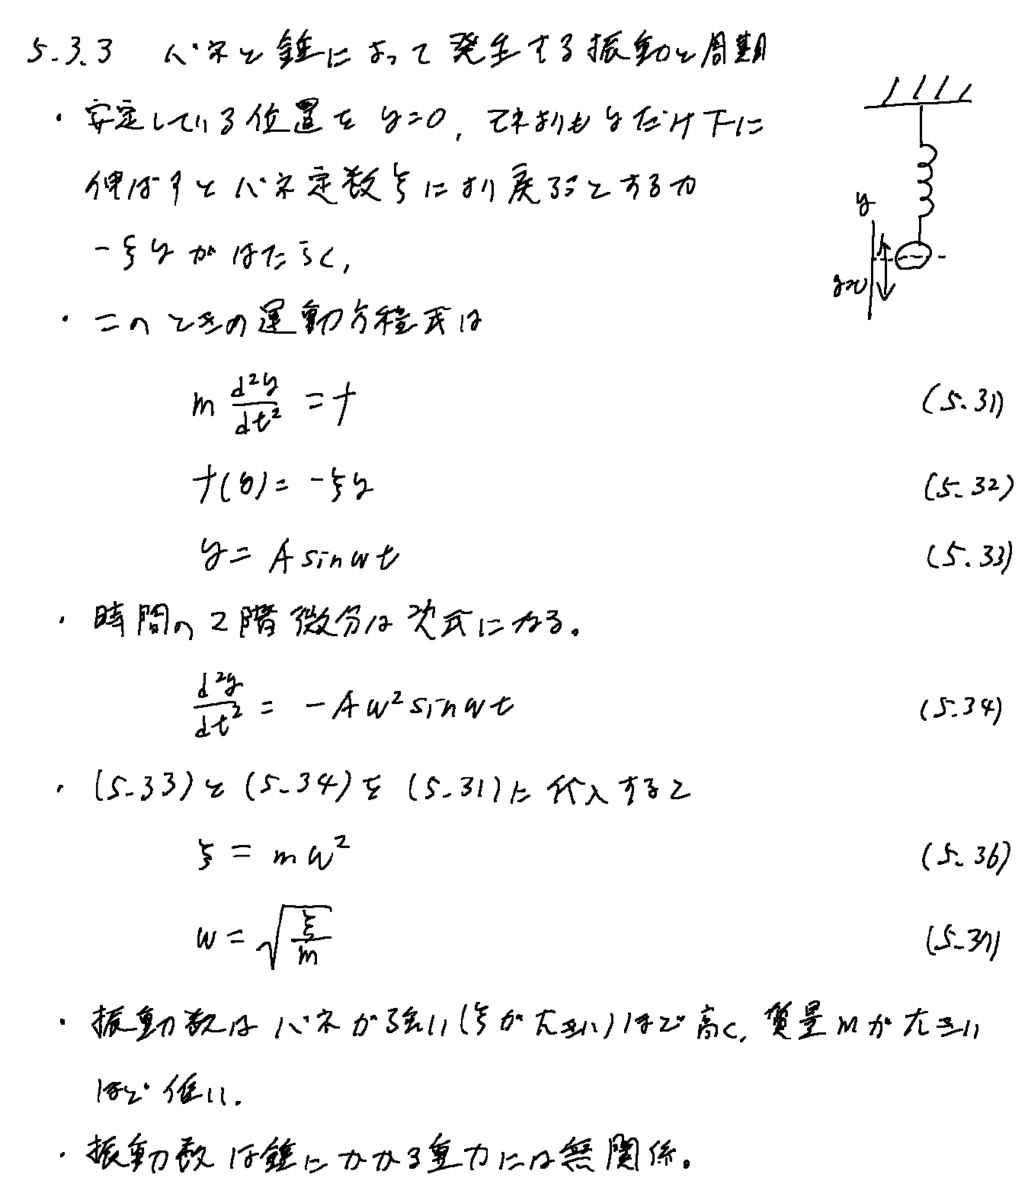 5.3.3 バネと錘によって発生する振動と周期
・安定している位置を y=0, それよりも y だけ下に
伸ばすとバネ定数ξにより戻ろうとする力
-ξy がはたらく,
・このときの運動方程式は
y
y=0
m d²y/dt² = f (5.31)
f(y) = -ξy (5.32)
y = A sin ωt (5.33)
・時間の2階微分は次式になる。
d²y/dt² = -Aω² sin ωt (5.34)
・(5.33)と(5.34)を(5.31)に代入すると
ξ = mω² (5.36)
ω = √(ξ/m) (5.37)
・振動数はバネが強い(ξが大きい)ほど高く, 質量mが大きい
ほど低い.
・振動数は錘にかかる重力には無関係。